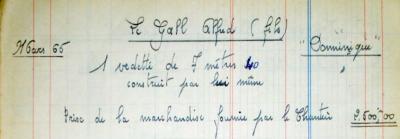 Le Gall Alfred (fils)
Mars 65 "Dominique"
1 vedette de 7 mètres 40 "
construit par lui même
Prise de la marchandise fournie par le Chantier 2.500,00